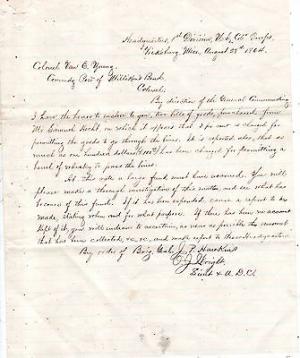 Headquarters, 1st Division, U.S. Col. Troops,
Vicksburg, Miss, August 28th 1864.
Colonel Van E. Young.
Comndg Post of Milliken's Bend.
Colonel;
By direction of the General Commanding
I have the honor to enclose to you, two bills of goods, purchased from
Mr Samuel Hecht, on which it appears that 2 per cent is charged for
permitting the goods to go through the lines. It is reported also, that as
much as one hundred dollars has been charged for permitting a
barrel of whiskey to pass the lines.
At this rate a large fund must have accrued. You will
please make a thorough investigation of this matter, and see what has
become of this fund. If it has been expended, cause a report to be
made, stating when and for what purpose. If there has been no account
kept of it, you will endeavor to ascertain, as near as possible the amount
that has been collected, &c, &c, and make report to these Headquarters.
By order of Brig. Genl. J. P. Hawkins
Wright,
Lieut & A.D.C.